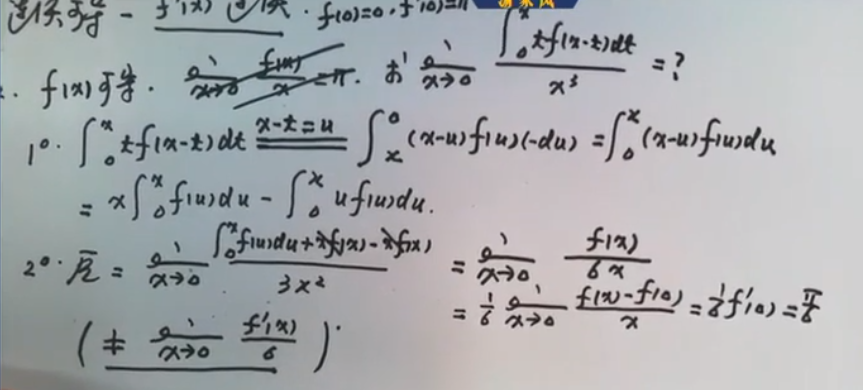 连续可导 - f'(x) 连续. f(0)=0, f'(0)=π
2. f(x) 可导. lim_{x→0} f(x)/x = π. 求 lim_{x→0} ∫_0^x t f(x-t)dt / x³ = ?
1°. ∫_0^x t f(x-t)dt \xlongequal{x-t=u} ∫_x^0 (x-u)f(u)(-du) = ∫_0^x (x-u)f(u)du
= x∫_0^x f(u)du - ∫_0^x u f(u)du.
2°. 原 = lim_{x→0} (∫_0^x f(u)du + xf(x) - xf(x)) / 3x² = lim_{x→0} f(x)/6x
= 1/6 lim_{x→0} (f(x)-f(0))/x = 1/6 f'(0) = π/6
(≠ lim_{x→0} f'(x)/6).